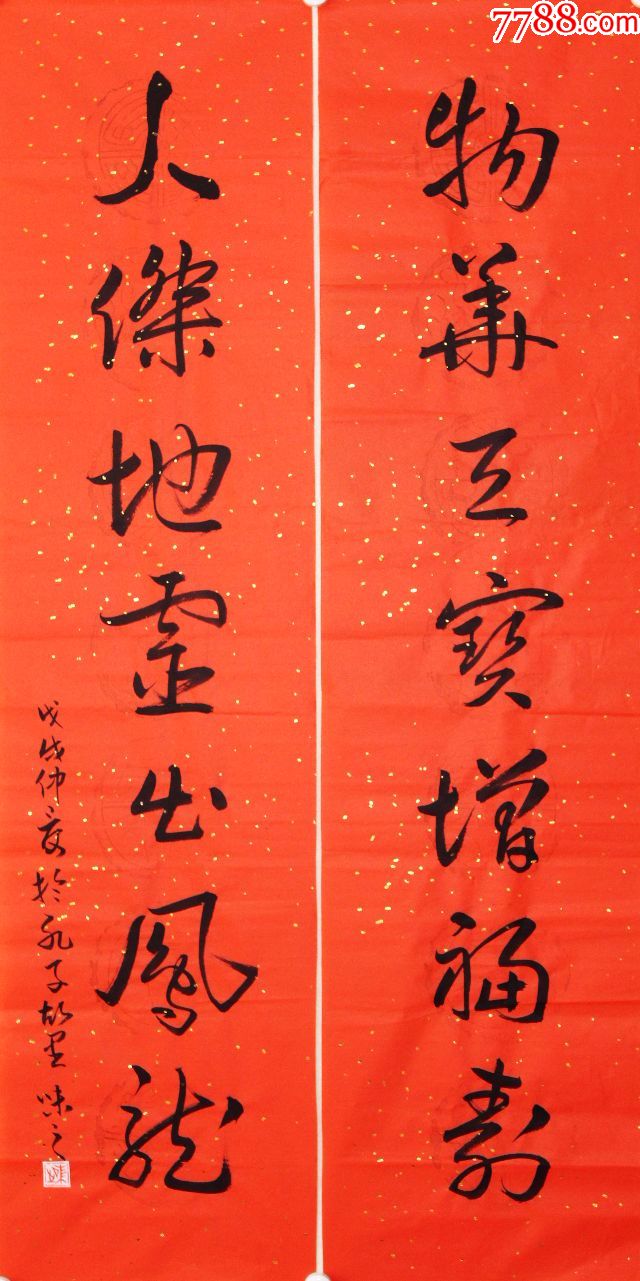 7788.com
物華天寶增福壽
人傑地靈出鳳龍
戊戌仲夏於孔子故里味之